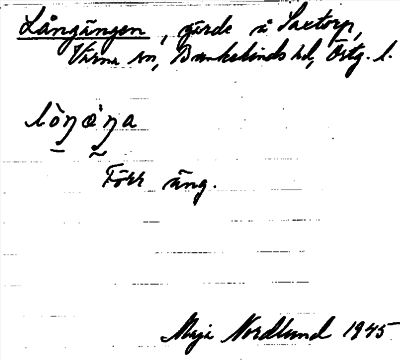 Långängen, gärde å Saxtorp,
Värna sn, Bankekinds hd, Östg. l.
lòŋæ̀ŋa
Förr äng.
Maja Nordlund 1945